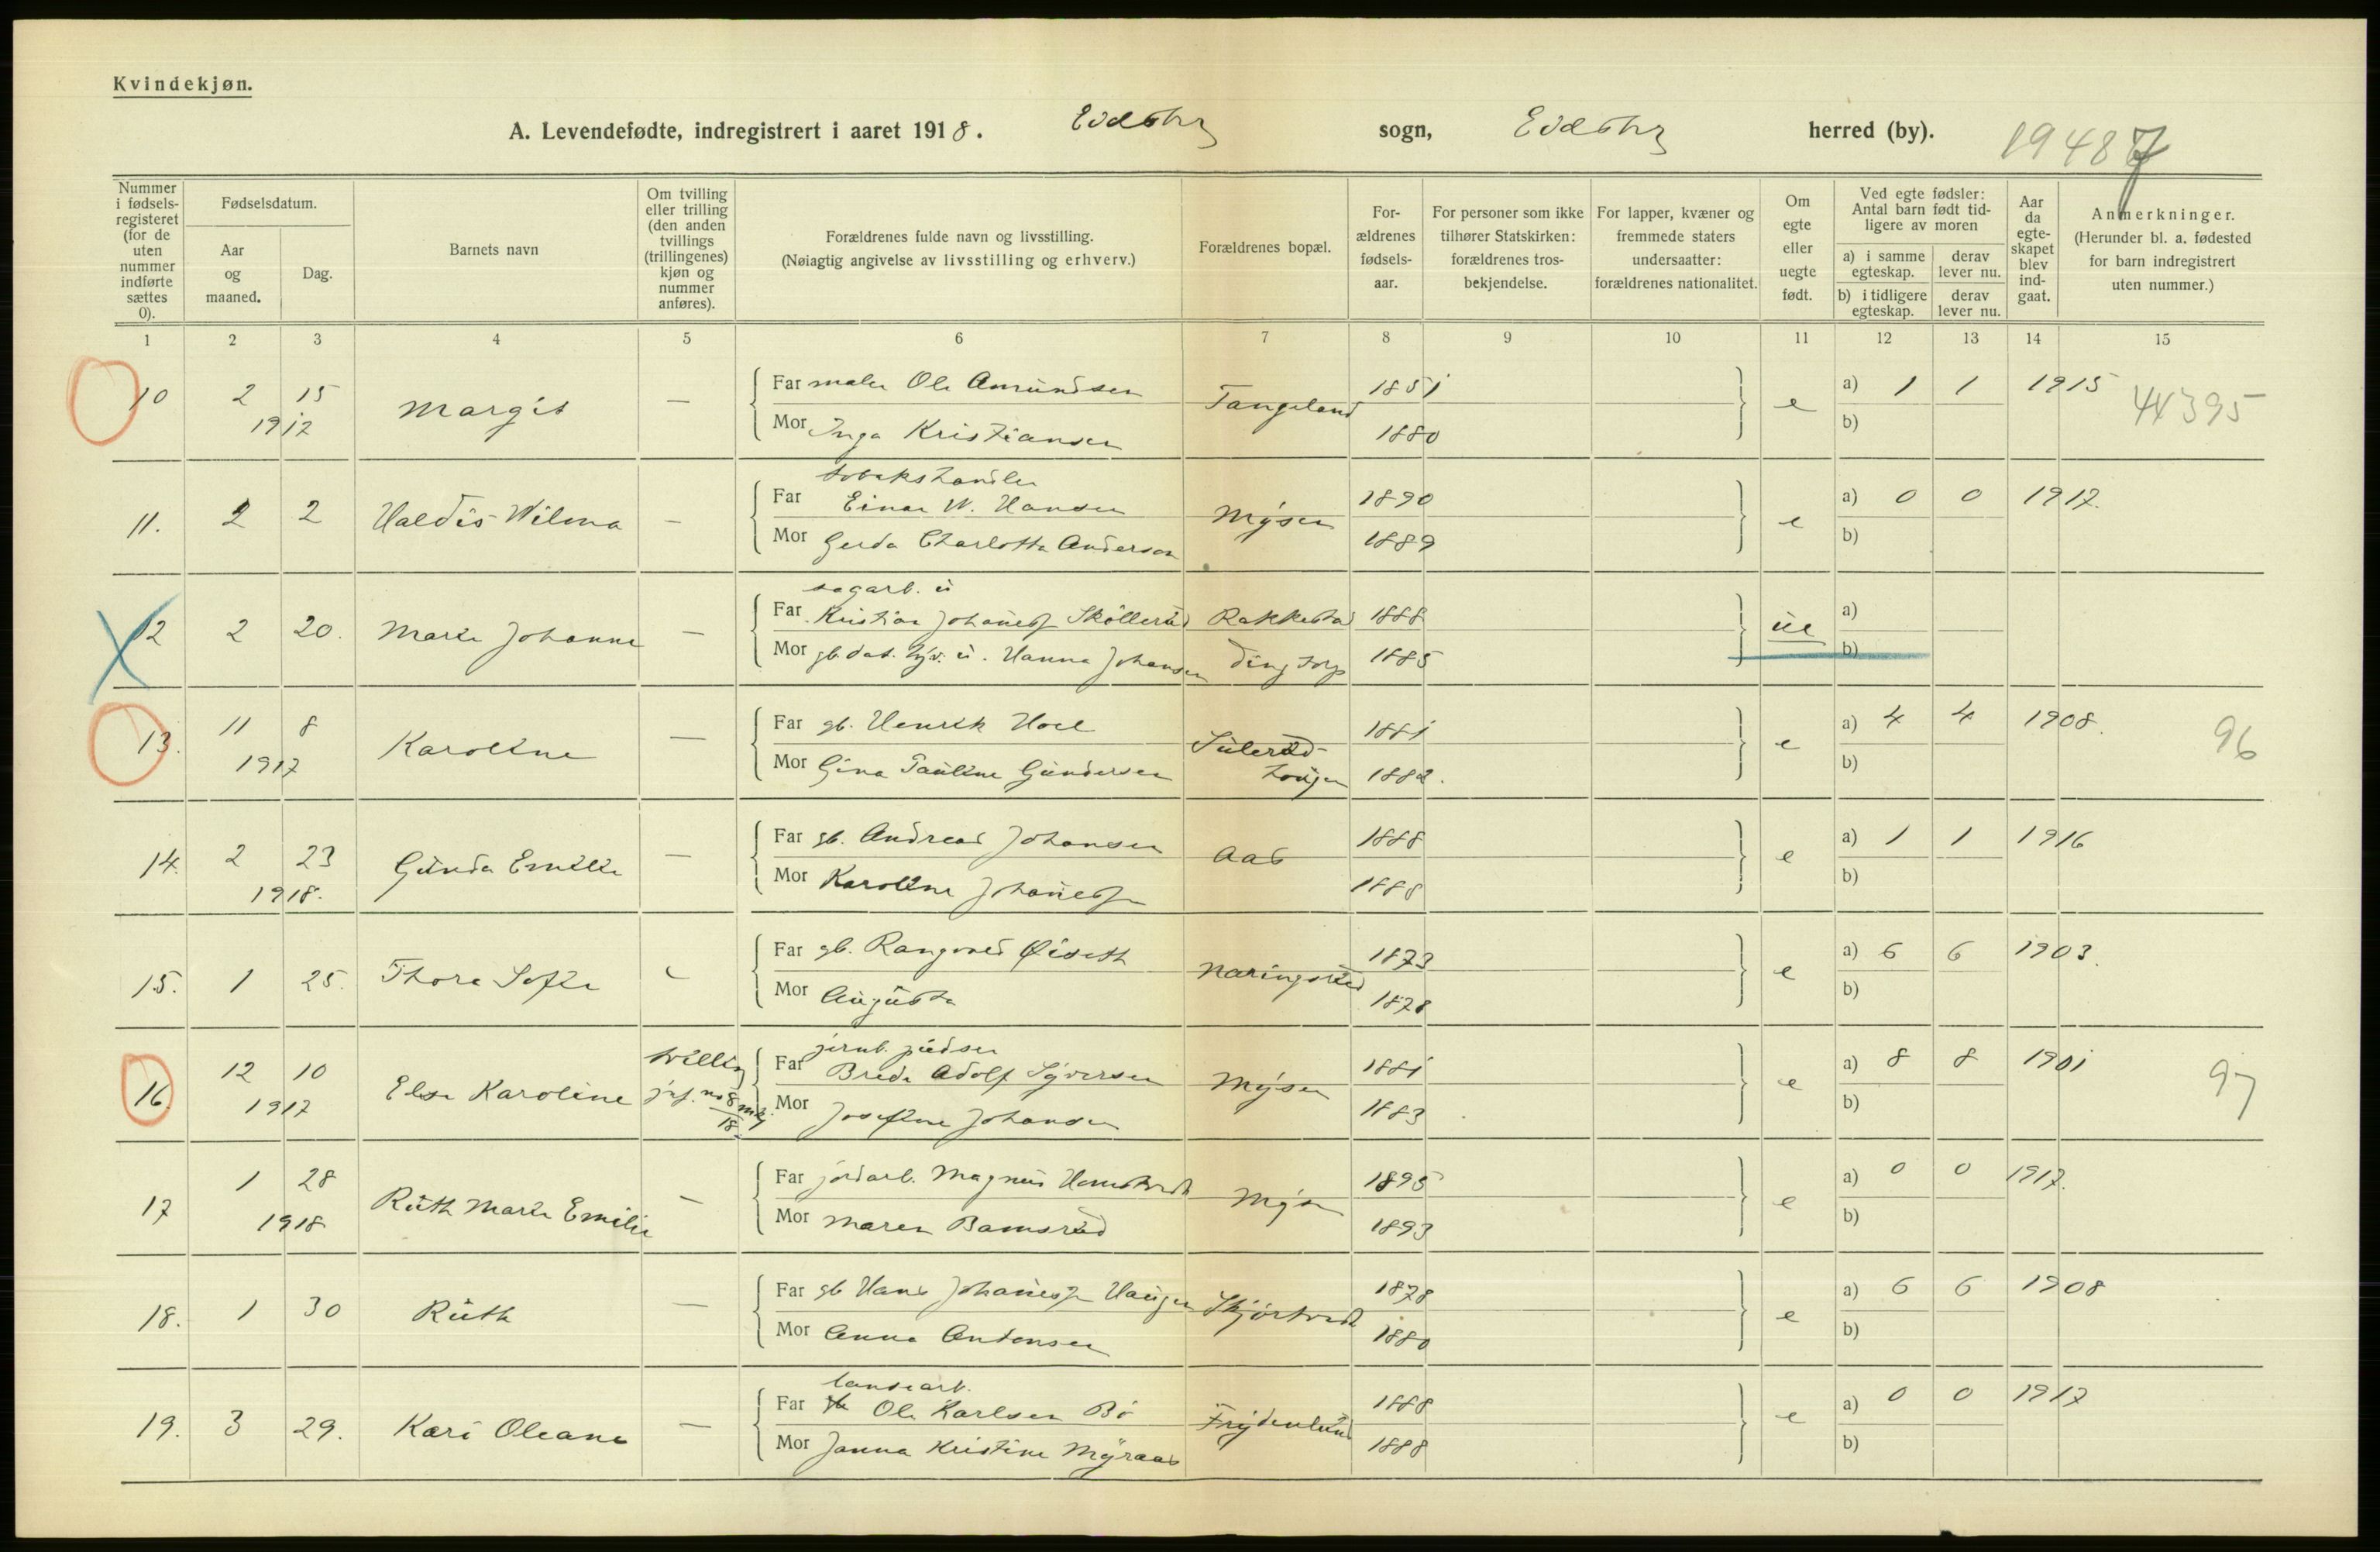 Kvindekjøn.
A. Levendefødte, indregistrert i aaret 1918. Eidsberg sogn, Eidsberg herred (by). 19487
Nummer i fødsels-registeret (for de uten nummer indførte sættes 0).
Fødselsdatum.
Aar og maaned.
Dag.
Barnets navn
Om tvilling eller trilling (den anden tvillings (trillingenes) kjøn og nummer anføres).
Forældrenes fulde navn og livsstilling.
(Nøiagtig angivelse av livsstilling og erhverv.)
Forældrenes bopæl.
For-ældrenes fødsels-aar.
For personer som ikke tilhører Statskirken: forældrenes tros-bekjendelse.
For lapper, kvæner og fremmede staters undersaatter: forældrenes nationalitet.
Om egte eller uegte født.
Ved egte fødsler: Antal barn født tid-ligere av moren
a) i samme egteskap. derav lever nu.
b) i tidligere egteskap. derav lever nu.
Aar da egte-skapet blev ind-gaat.
Anmerkninger.
(Herunder bl. a. fødested for barn indregistrert uten nummer.)
1 2 3 4 5 6 7 8 9 10 11 12 13 14 15
10 2 15 1917 Margit — Far maler Ole Amundsen Tangeland 1881 e a) 1 1 1915 44395
Mor Inga Kristiansen 1880 b)
tobakshandler
11. 2 2 Haldis Wilma — Far Einar W. Hansen Mysen 1890 e a) 0 0 1917.
Mor Gerda Charlotta Anderson 1889 b)
sagarb. u
12 2 20. Marie Johanne — Far Kristian Johannes Skøllerud Rakkestad 1888 ue a)
Mor gb. dat. Hanna Johansen Dingtorp 1885 b)
13. 11 8 1917 Karoline — Far gb. Henrik Hoel Sulerud- 1881 e a) 4 4 1908. 96
Mor Gina Pauline Gundersen haugen 1882. b)
14. 2 23 1918. Gunda Emilie — Far gb. Andreas Johansen Aas 1888 e a) 1 1 1916
Mor Karoline Johannessen 1888 b)
15. 1 25. Thora Sofie — Far gb. Rangvald Øiseth Naringsrud 1873 e a) 6 6 1903.
Mor Augusta 1878 b)
16. 12 10 1917 Else Karoline tvilling jnf. no 8 mkj 18. jernb. Far Brede Adolf Syversen Mysen 1881 e a) 8 8 1901 97
Mor Josefine Johansen 1883 b)
17 1 28 1918 Ruth Marie Emilie — Far jordarb. Magnus Homstvedt Mysen 1895 e a) 0 0 1917.
Mor Maren Bamsrud 1893 b)
18. 1 30 Ruth — Far gb Hans Johannessen Haugen Skjørtvedt 1878 e a) 6 6 1908
Mor Anna Antonsen 1880 b)
landearb.
19. 3 29. Kari Oleane — Far Ole Karlsen Bø Frydenlund 1888 e a) 0 0 1917
Mor Janna Kristine Myraas 1888 b)